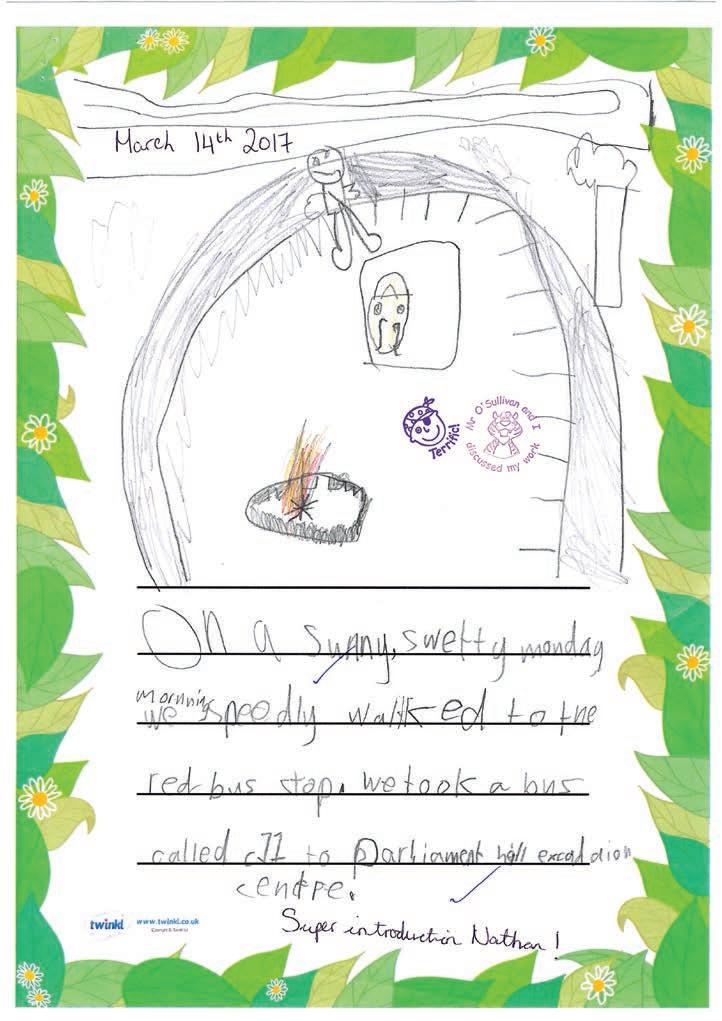 March 14th 2017
Terrific!
Mr O'Sullivan and I
discussed my work
On a sunny, swetty monday
mornning
we speedly walked to the
red bus stop. we took a bus
called c11 to Parliament hill
centre.
twinkl
www.twinkl.co.uk
Super introduction Nathan!